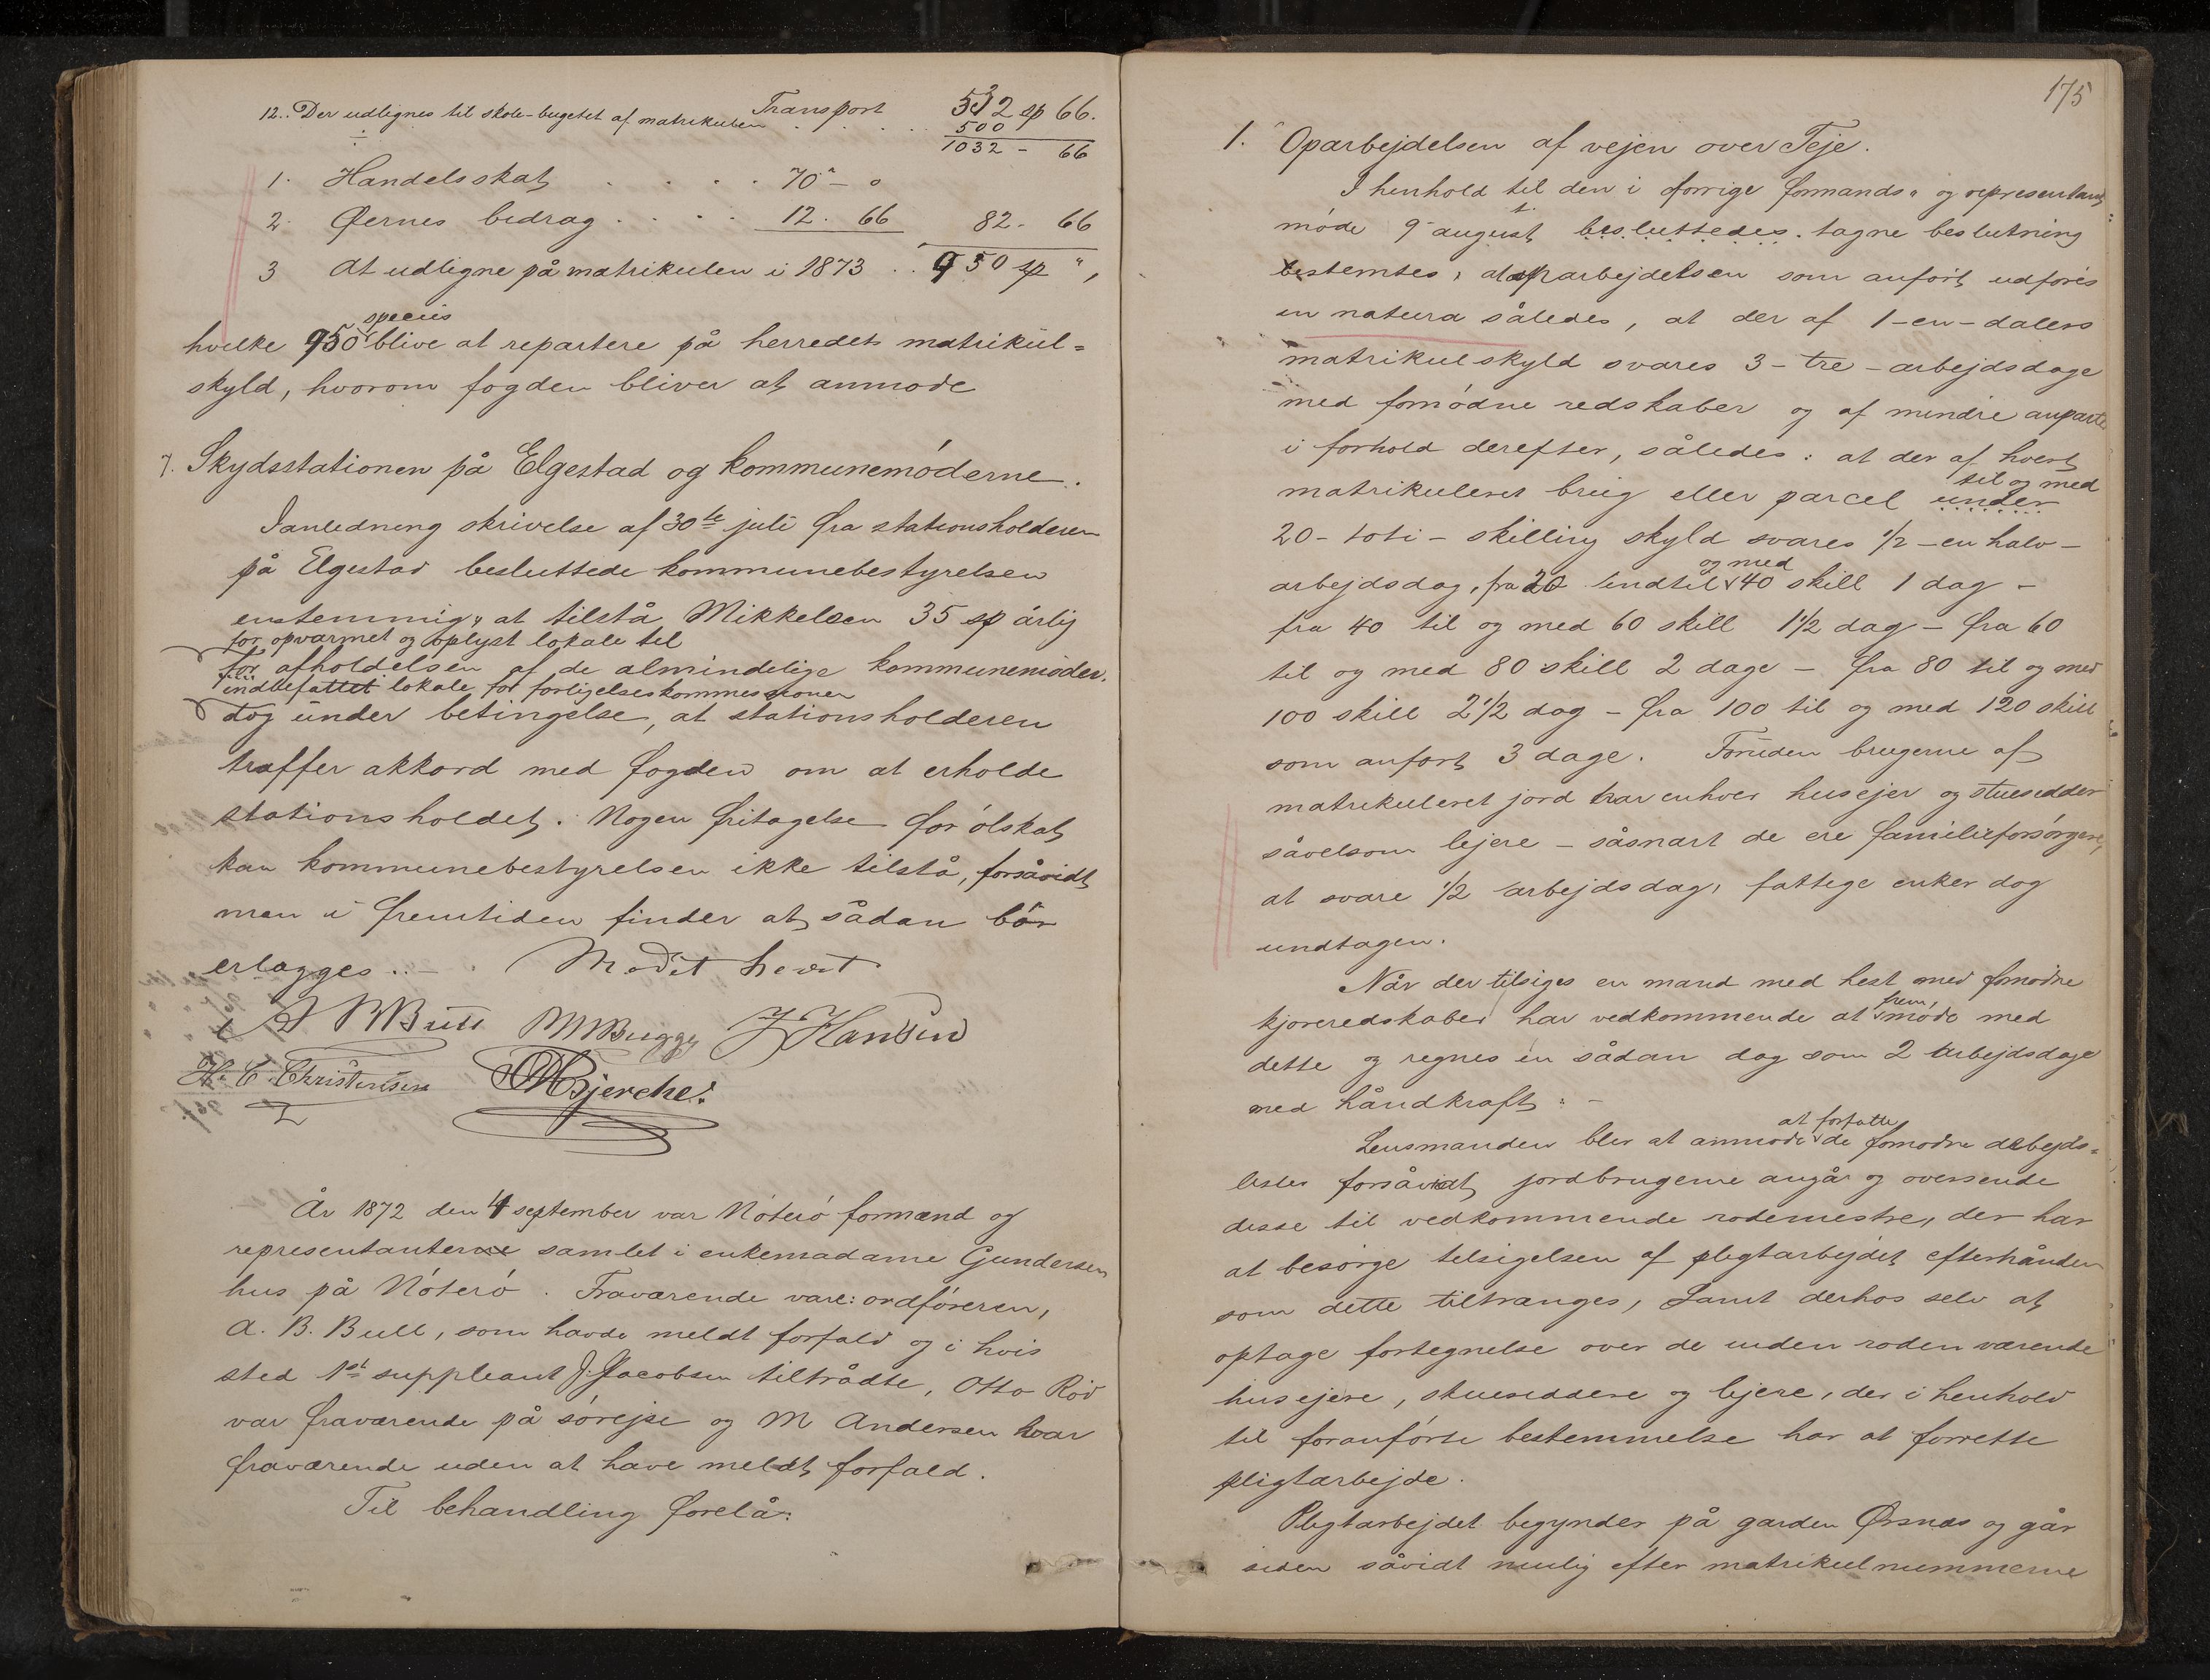 12. Der udlignes til skole-bugetet af matrikulen Transport 532 sp 66.
500
1032 - 66
1. Handelsskat . . . . 70 - 0
2. Øernes bedrag . . . . 12. 66 82. 66
3 At udligne på matrikulen i 1873 . . 950 sp "
species
hvilke 950 blive at repartere på herredets matrikul=
skyld, hvorom fogden bliver at anmode
7. Skydsstationen på Elgestad og kommunemöderne.
Ianledning skrivelse af 30te juli fra stationsholderen
på Elgestad besluttede kommunebestyrelsen
enstemmig, at tilstå Mikkelsen 35 sp årlig
for opvarmet og oplyst lokale til
for afholdelsen af de almindelige kommunemöder.
indbefattet lokale for forligelseskommessionen
dog under betingelse, at stationsholderen
træffer akkord med fogden om at erholde
stationsholdet. Nogen fritagelse for ölskat
kan kommunebestyrelsen ikke tilstå, forsåvidt
man i fremtiden finder at sådan bör
erlægges. . - Mödet hevet.
A B Bull M Bugge J Hansen
H. C. Christensen O M Bjerche.
År 1872 den 4 september var Nöterö formænd og
representanterne samlet i enkemadame Gundersens
hus på Nöterö. Fraværende vare: ordföreren,
A. B. Bull, som havde meldt forfald og i hvis
sted 1st suppleant J. Jacobsen tiltrådte, Otto Röd
var fraværende på sörejse og M Andersen var
fraværende uden at have meldt forfald.
Til behandling forelå:
175
1. Oparbejdelsen af vejen over Teje.
I henhold til den i forrige formands- og representant=
möde 9 august besluttedes tagne beslutning
bestemtes, at oparbejdelsen som anfört udföres
in natura således, at der af 1-en-dalers
matrikulskyld svares 3-tre-arbejdsdage
med fornödne redskaber og af mindre anparte
i forhold derefter, således: at der af hvert
til og med
matrikuleret brug eller parcel under
20-toti-skilling skyld svares ½-en halv-
og med
arbejdsdag, fra 20 indtil 40 skill 1 dag -
fra 40 til og med 60 skill 1½ dag - fra 60
til og med 80 skill 2 dage - fra 80 til og med
100 skill 2½ dag - fra 100 til og med 120 skill
som anfört 3 dage. Foruden brugerne af
matrikuleret jord har enhver husejer og stuesidder
såvelsom lejere - såsnart de ere familieforsörgere,
at svare ½ arbejdsdag, fattige enker dog
undtagen.
Når der tilsiges en mand med hest med fornödne
frem,
kjöreredskaber har vedkommende at möde med
dette og regnes en sådan dag som 2 arbejdsdage
med håndkraft. -
at forfatte
Lensmanden blev at anmode de fornödne arbejds=
lister forsåvidt jordbrugerne angår og oversende
disse til vedkommende rodemestre, der har
at besörge tilsigelsen af pligtarbejdet efterhånden
som dette tiltrænges, samt derhos selv at
optage fortegnelse over de inden roden værende
husejere, stuesiddere og lejere, der i henhold
til foranförte bestemmelse har at forrette
pligtarbejde.
Pligtarbejdet begynder på garden Ørsnæs og går
siden såvidt mulig efter matrikulnummerne